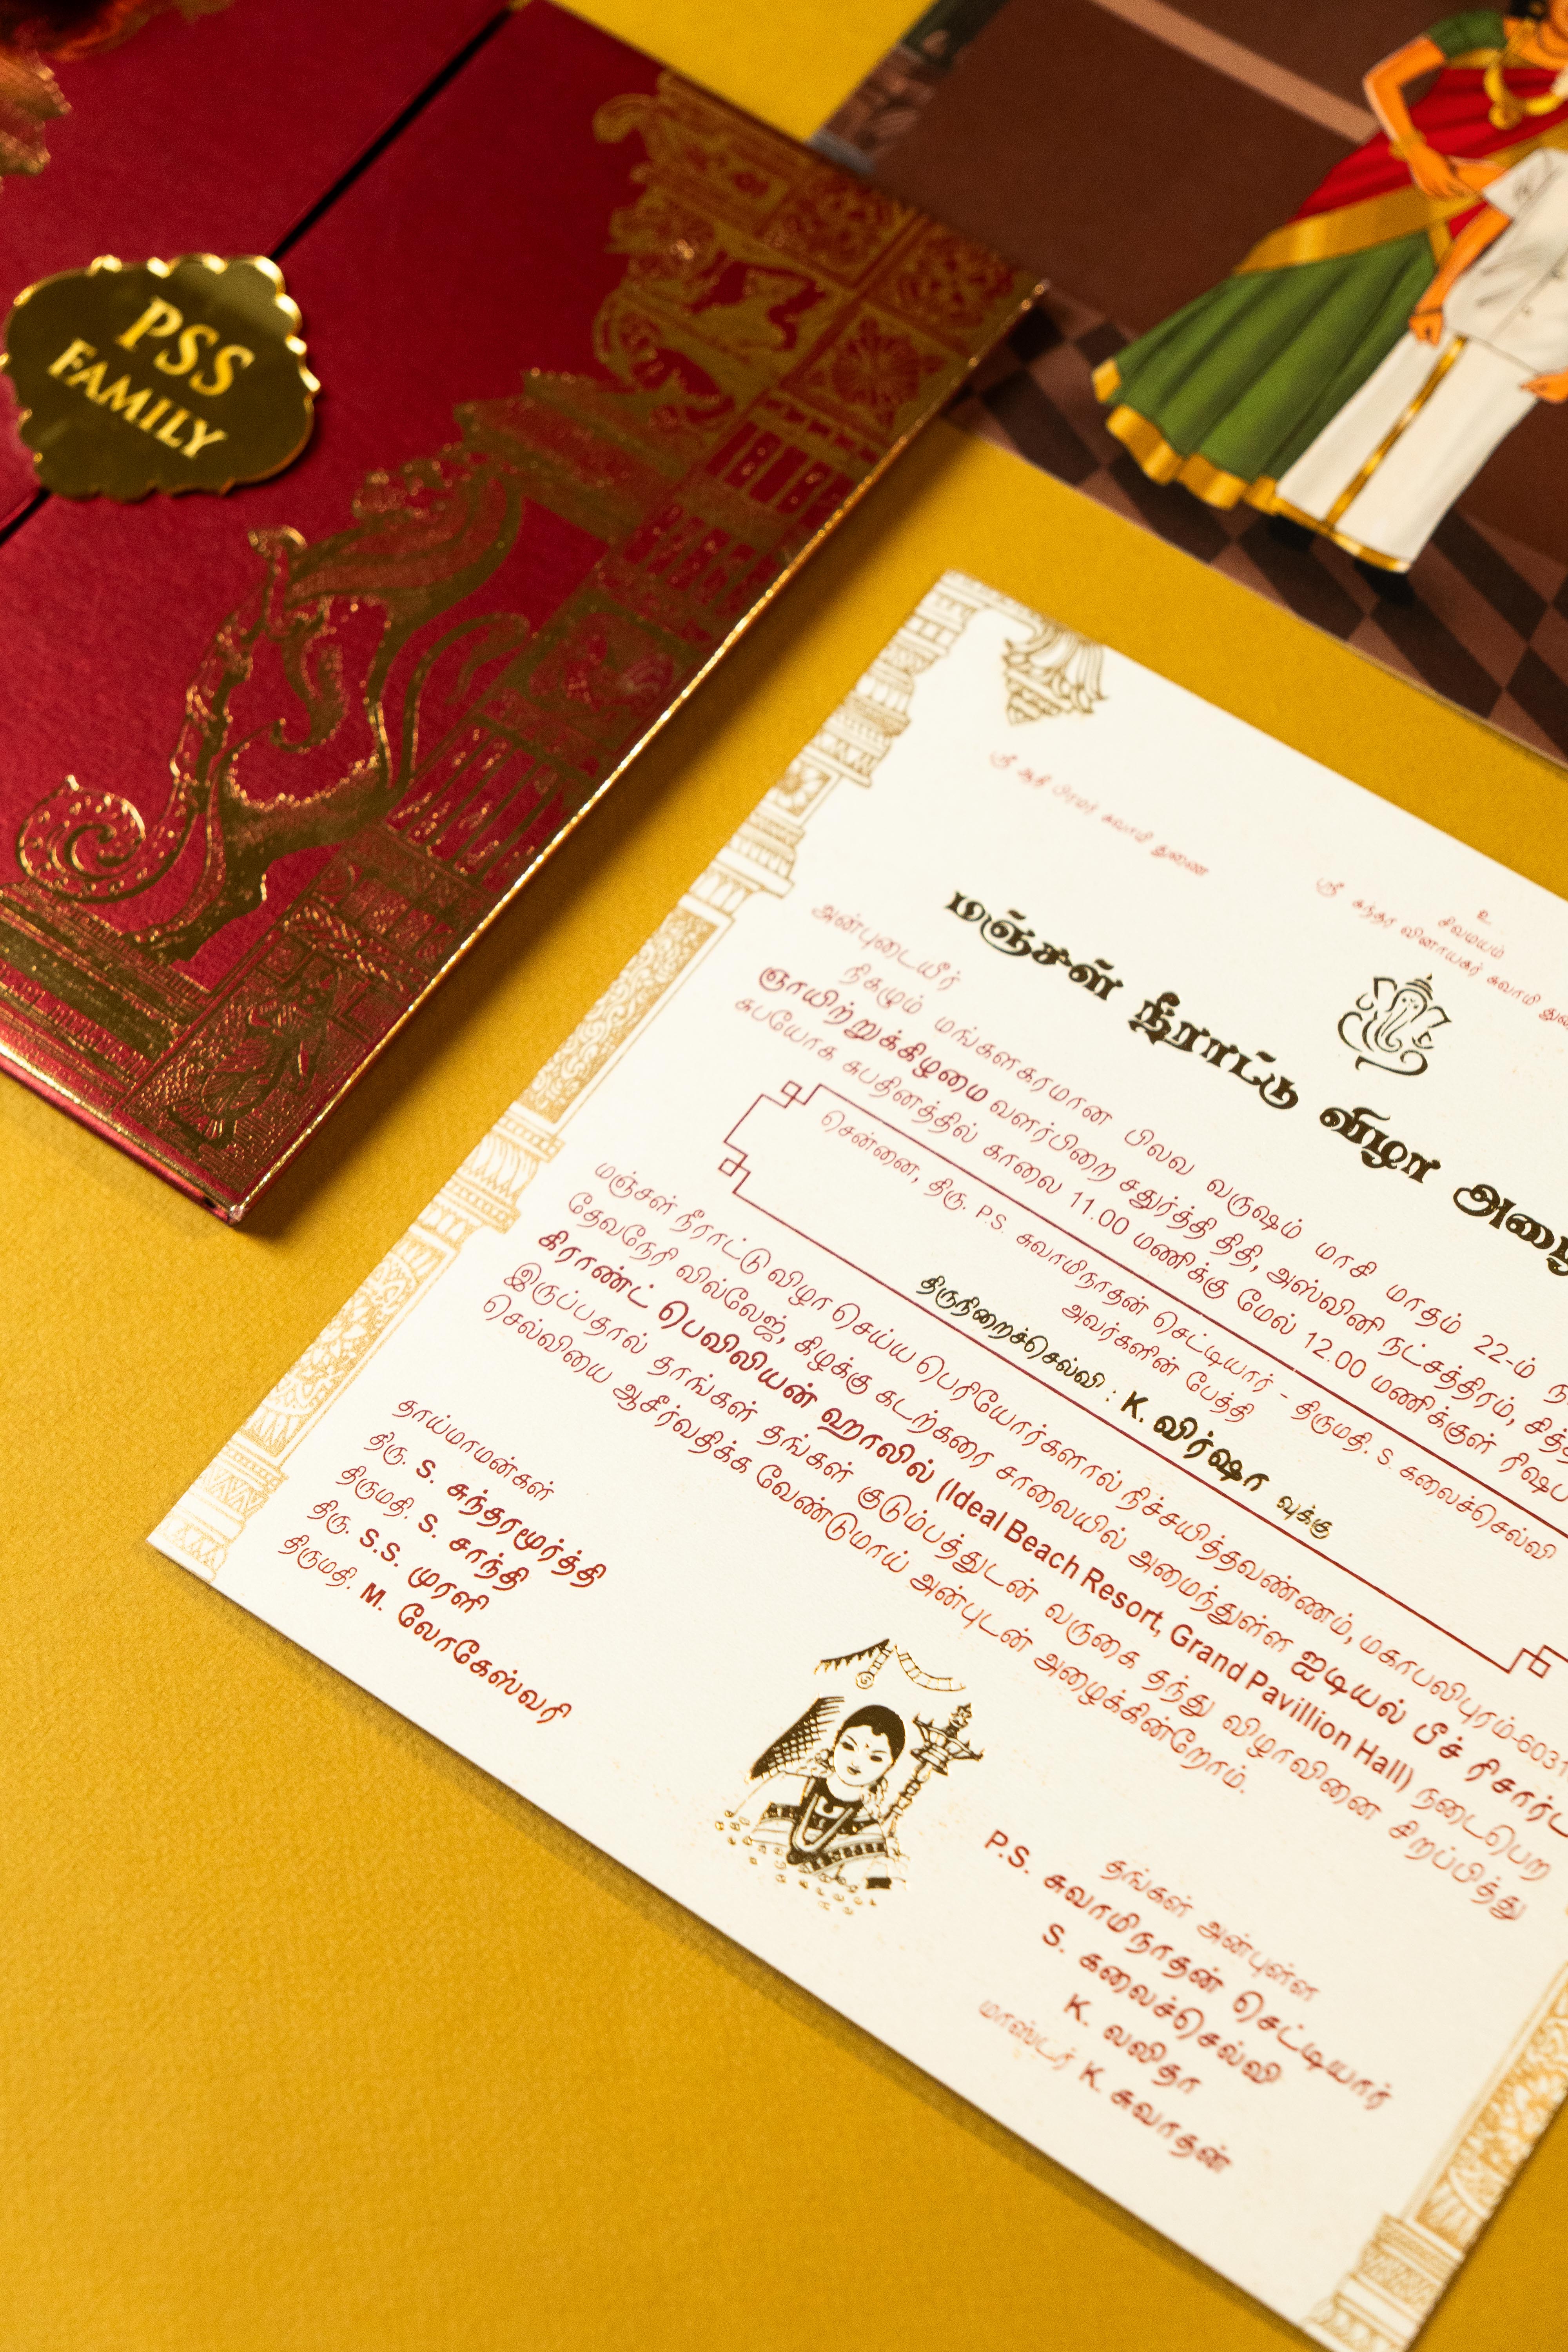 PSS
FAMILY
உ
சிவமயம்
ஸ்ரீ ஆதி பிரமர் சுவாமி துணை
ஸ்ரீ சுந்தர விநாயகர் சுவாமி
மஞ்சள் நீராட்டு விழா
அன்புடையீர்
நிகழும் மங்களகரமான பிலவ வருஷம் மாசி மாதம் 22-ம்
ஞாயிற்றுக்கிழமை வளர்பிறை சதுர்த்தி திதி, அஸ்வினி நட்சத்திரம்,
சுபயோக சுபதினத்தில் காலை 11.00 மணிக்கு மேல் 12.00 மணிக்குள்
சென்னை, திரு. P.S. சுவாமிநாதன் செட்டியார் - திருமதி. S. கலைச்செல்வி
அவர்களின் பேத்தி
திருநிறைச்செல்வி : K. விர்ஷா வுக்கு
மஞ்சள் நீராட்டு விழா செய்ய பெரியோர்களால் நிச்சயித்தவண்ணம், மகாபலிபுரம்-6031
தேவநேரி வில்லேஜ், கிழக்கு கடற்கரை சாலையில் அமைந்துள்ள ஐடியல் பீச் ரிசார்ட்
கிராண்ட் பெவிலியன் ஹாலில் (Ideal Beach Resort, Grand Pavillion Hall) நடைபெற
இருப்பதால் தாங்கள் தங்கள் குடும்பத்துடன் வருகை தந்து விழாவினை சிறப்பித்து
செல்வியை ஆசீர்வதிக்க வேண்டுமாய் அன்புடன் அழைக்கின்றோம்.
தாய்மாமன்கள்
திரு. S. சுந்தரமூர்த்தி
திருமதி. S. சாந்தி
திரு. S.S. முரளி
திருமதி. M. லோகேஸ்வரி
தங்கள் அன்புள்ள
P.S. சுவாமிநாதன் செட்டியார்
S. கலைச்செல்வி
K. லலிதா
மாஸ்டர் K. சுவாதன்